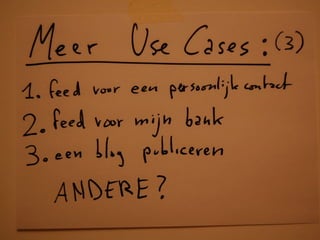 Meer Use Cases: (3)
1. feed voor een persoonlijk contact
2. feed voor mijn bank
3. een blog publiceren
ANDERE?